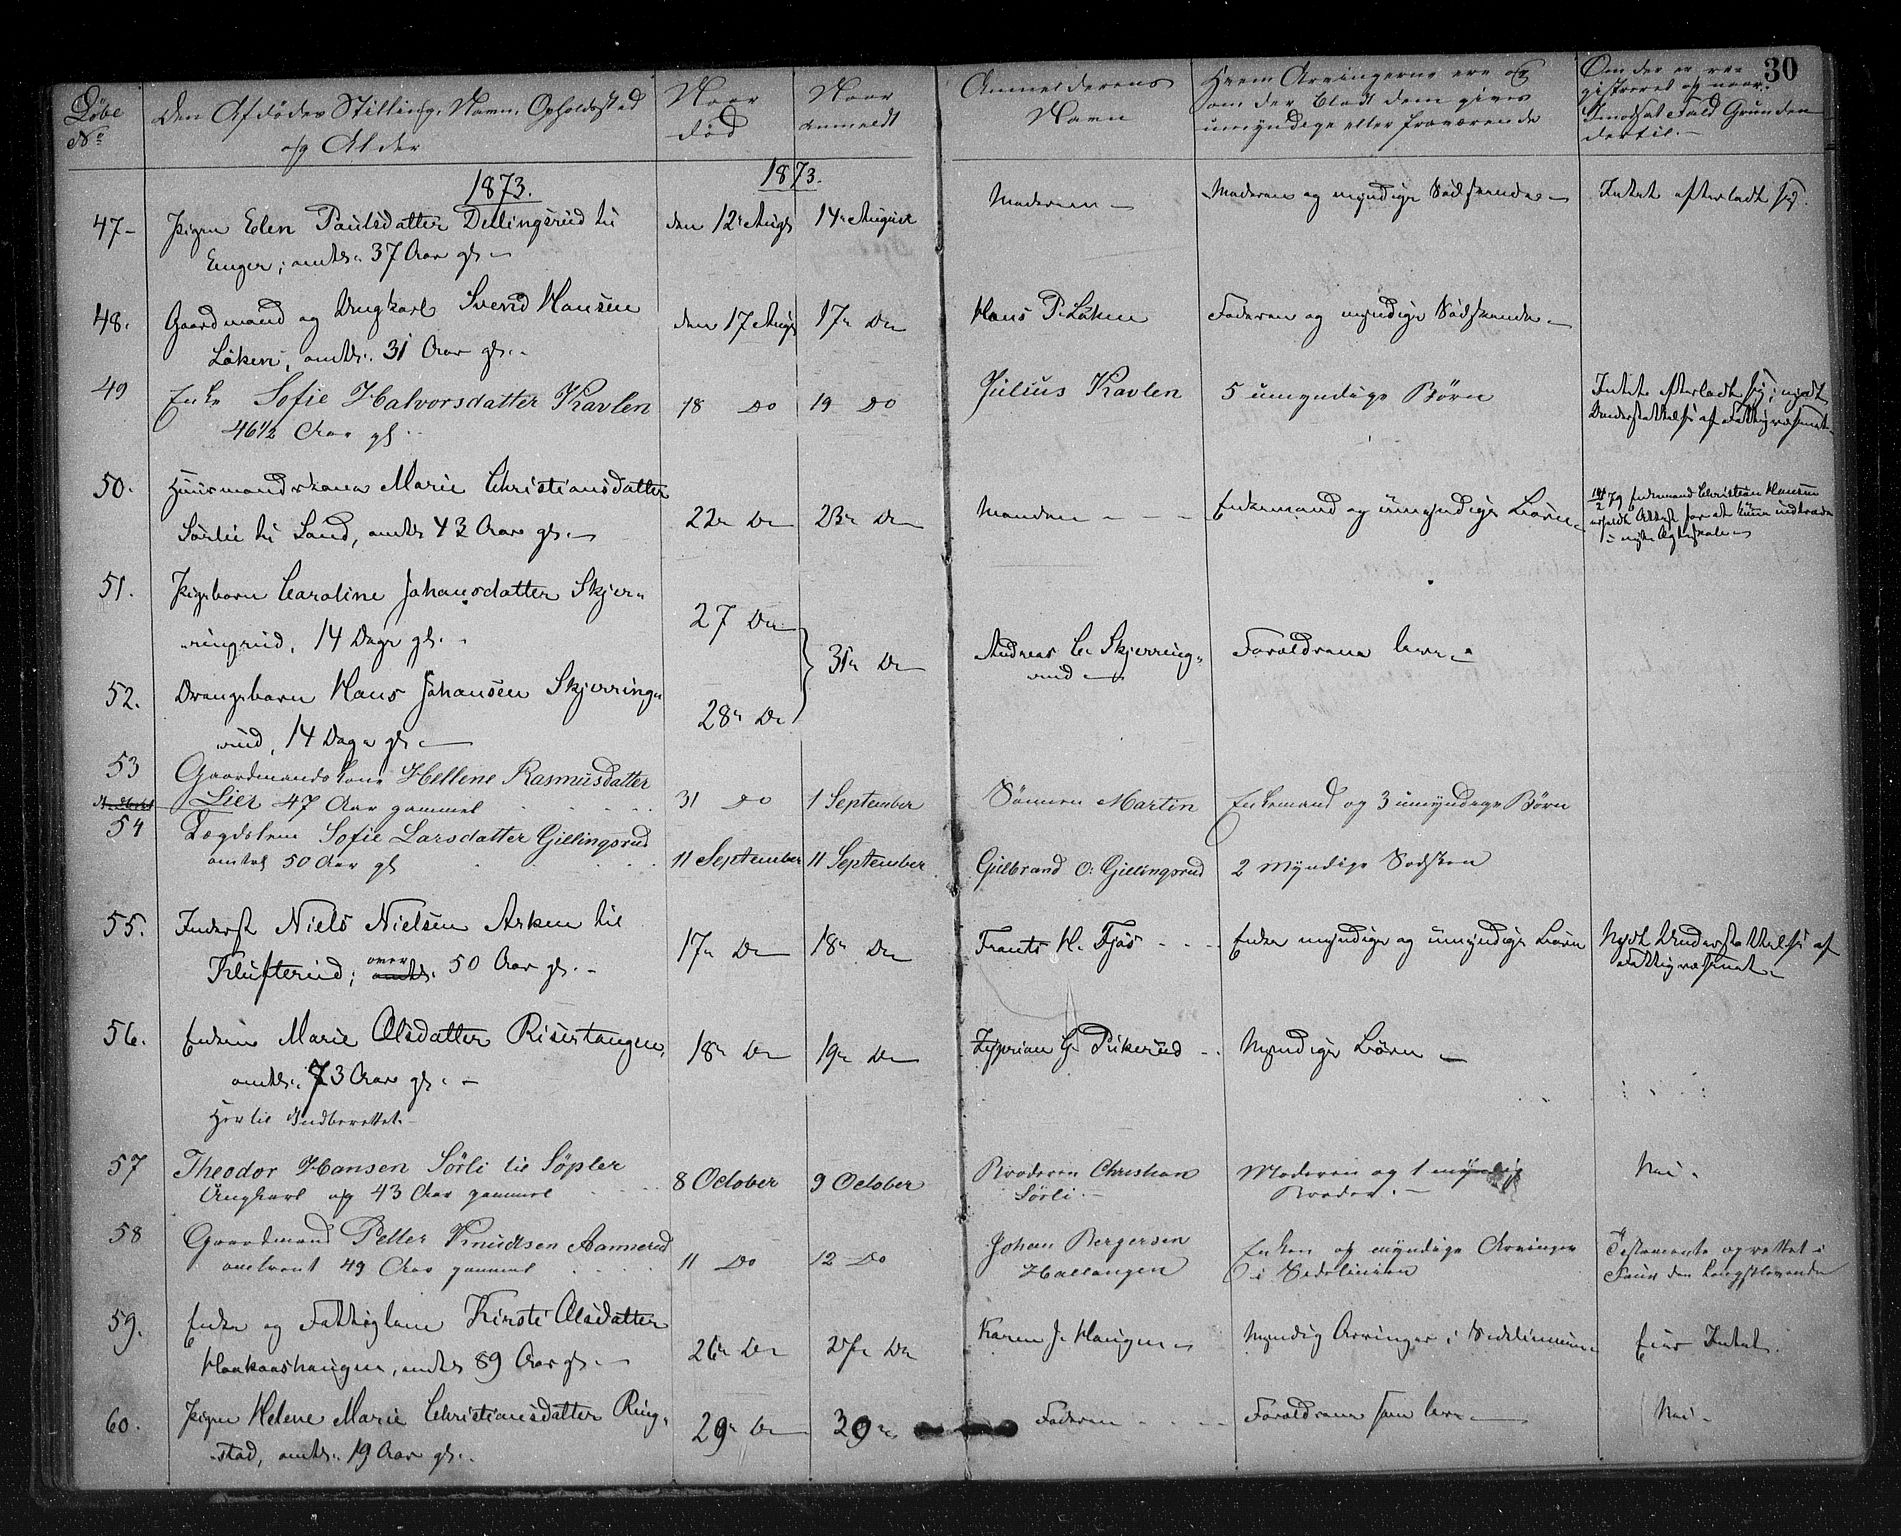 30
Løbe
No
Den Afdødes Stilling, Navn, Opholdssted
og Alder
Naar
død
Naar
anmeldt
Anmelderens
Navn
Hvem Arvingerne ere og
om der blandt dem gives
umyndige eller fraværende
Om der er re-
gistreret og naar.
I modsat Fald Grunden
dertil.-
1873.
1873.
47-
Pigen Elen Paulsdatter Dellingsrud til
Enger; omtr. 37 Aar gl.-
den 12te Augs
14de August
Moderen -
Moderen og myndige Sødskende -
Intet efterladt sig.
48.
Gaardmand og Ungkarl Svend Hansen
Løken, omtr. 31 Aar gl.-
den 17 Augs
17de Do
Hans P. Løken
Faderen og myndige Sødskende -
49
Enke Sofie Halvorsdatter Kavlen
46 1/2 Aar gl.
18 Do
19 Do
Julius Kavlen
5 umyndige Børn
Intet efterladt sig; nydt
Understøttelse af Fattigvæsenet.
50.
Huusmandskone Marie Christiansdatter
Sørlie til Land, omtr. 43 Aar gl. -
22de Do
23de Do
Manden - - -
Enkemand og umyndige Børn -
79 Enkemand Christian Hansen
Attest for at kunne indtræde
i nyt Ægteskab -
51.
Pigebarn Caroline Johansdatter Skjer-
ringrud, 14 Dage gl. -
27 Do
31te Do
Andreas C. Skjerring-
rud -
Forældrene leve -
52.
Drengebarn Hans Johansen Skjerring-
rud, 14 Dage gl. -
28de Do
53
Gaardmandskone Hellene Rasmusdatter
Lier 47 Aar gammel
31 Do
1 September
Sønnen Martin
Enkemand og 3 umyndige Børn
54
Lægdslem Sofie Larsdatter Gillingsrud
omtrt 50 Aar gl
11 September
11 September
Gulbrand O. Gillingsrud
2 Myndige Sødsken
55.
Inderst Niels Nielsen Asken til
Klufterud; over omtr. 50 Aar gl. -
17de Do
18de Do
Frants H. Fjøs - -
Enke myndige og umyndige Børn
Nydt Understøttelse af
Fattigvæsenet -
56.
Enken Marie Olsdatter Risertangen,
omtr. 73 Aar gl. -
18de Do
19de Do
Zyprian G. Pukerud - .
Myndige Børn -
Hertil Indberettet -
57
Theodor Hansen Sørli til Søpler
Ungkarl og 43 Aar gammel
8 October
9 October
Broderen Christian
Sørli. -
Moderen og 1 myndig
Broder. -
Nei -
58
Gaardmand Petter Knudtsen Aannerud
omtrent 49 Aar gammel
11 Do
12 Do
Johan Bergersen
Hallangen
Enken og myndige Arvinger
i Sidelinien
Testamente oprettet i
Faur den Længstlevende
59.
Enke og Fattiglem Kirsti Olsdatter
Haakaashaugen, omtr. 89 Aar gl. -
26de Do
27de Do
Karen J. Haugen -
Myndig Arvinger i Sidelinien -
Eier Intet.
60.
Pigen Helene Marie Christiansdatter Ring-
stad, omtr. 19 Aar gl. -
29de Do
30te
Faderen - - -
Forældrene som leve -
Nei -